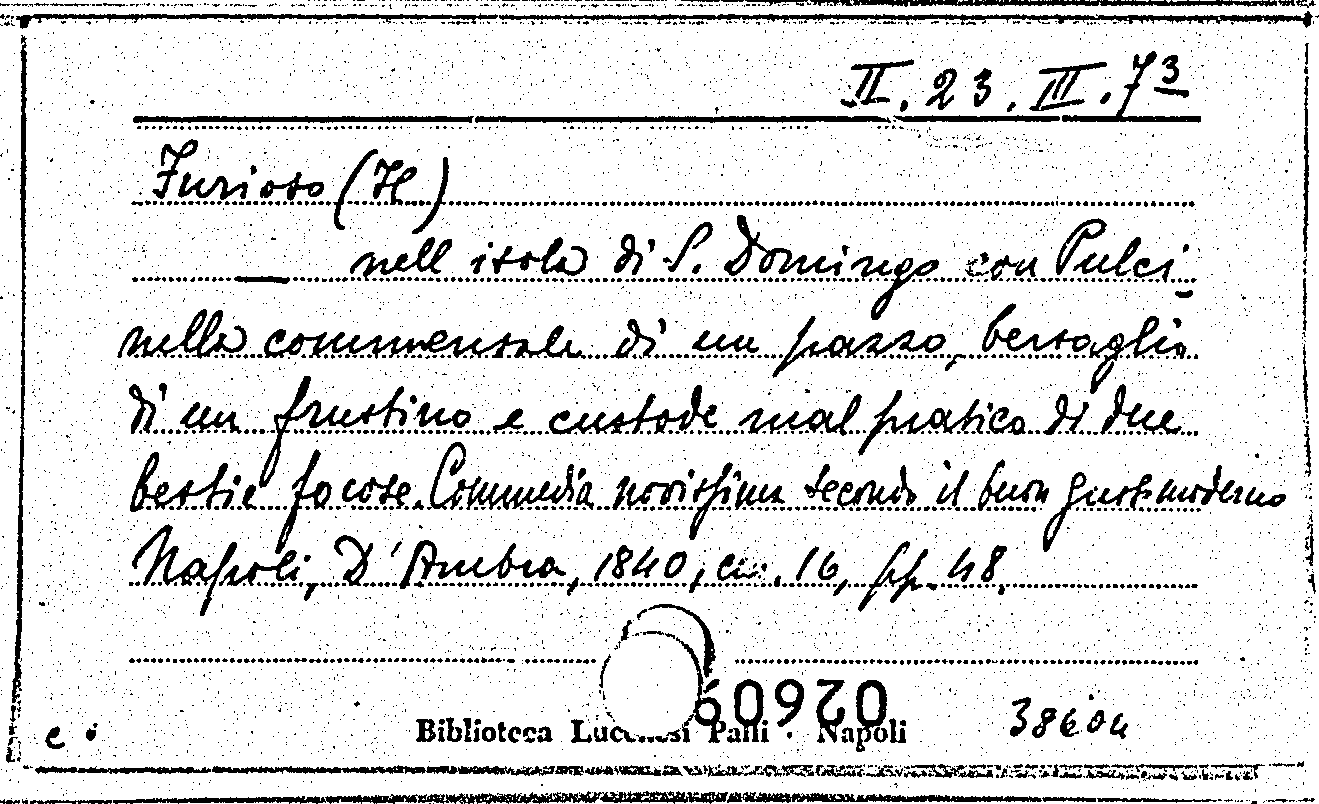 II. 23. III. 7³
Furioso (Il)
— nell isola di S. Domingo con Pulci-
nella commensale di un pazzo, bersaglio
di un frustino e custode mal pratico di due
bestie focose. Commedia novissima secondo il buon gusto moderno
Napoli, D'Ambra, 1840, in. 16, pp. 48.
Biblioteca Lucchesi Palli - Napoli